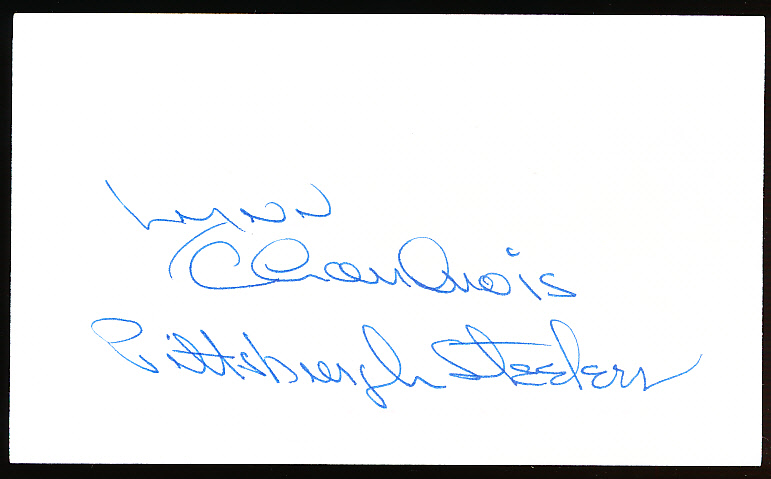 Lynn
Chandnois
Pittsburgh Steelers